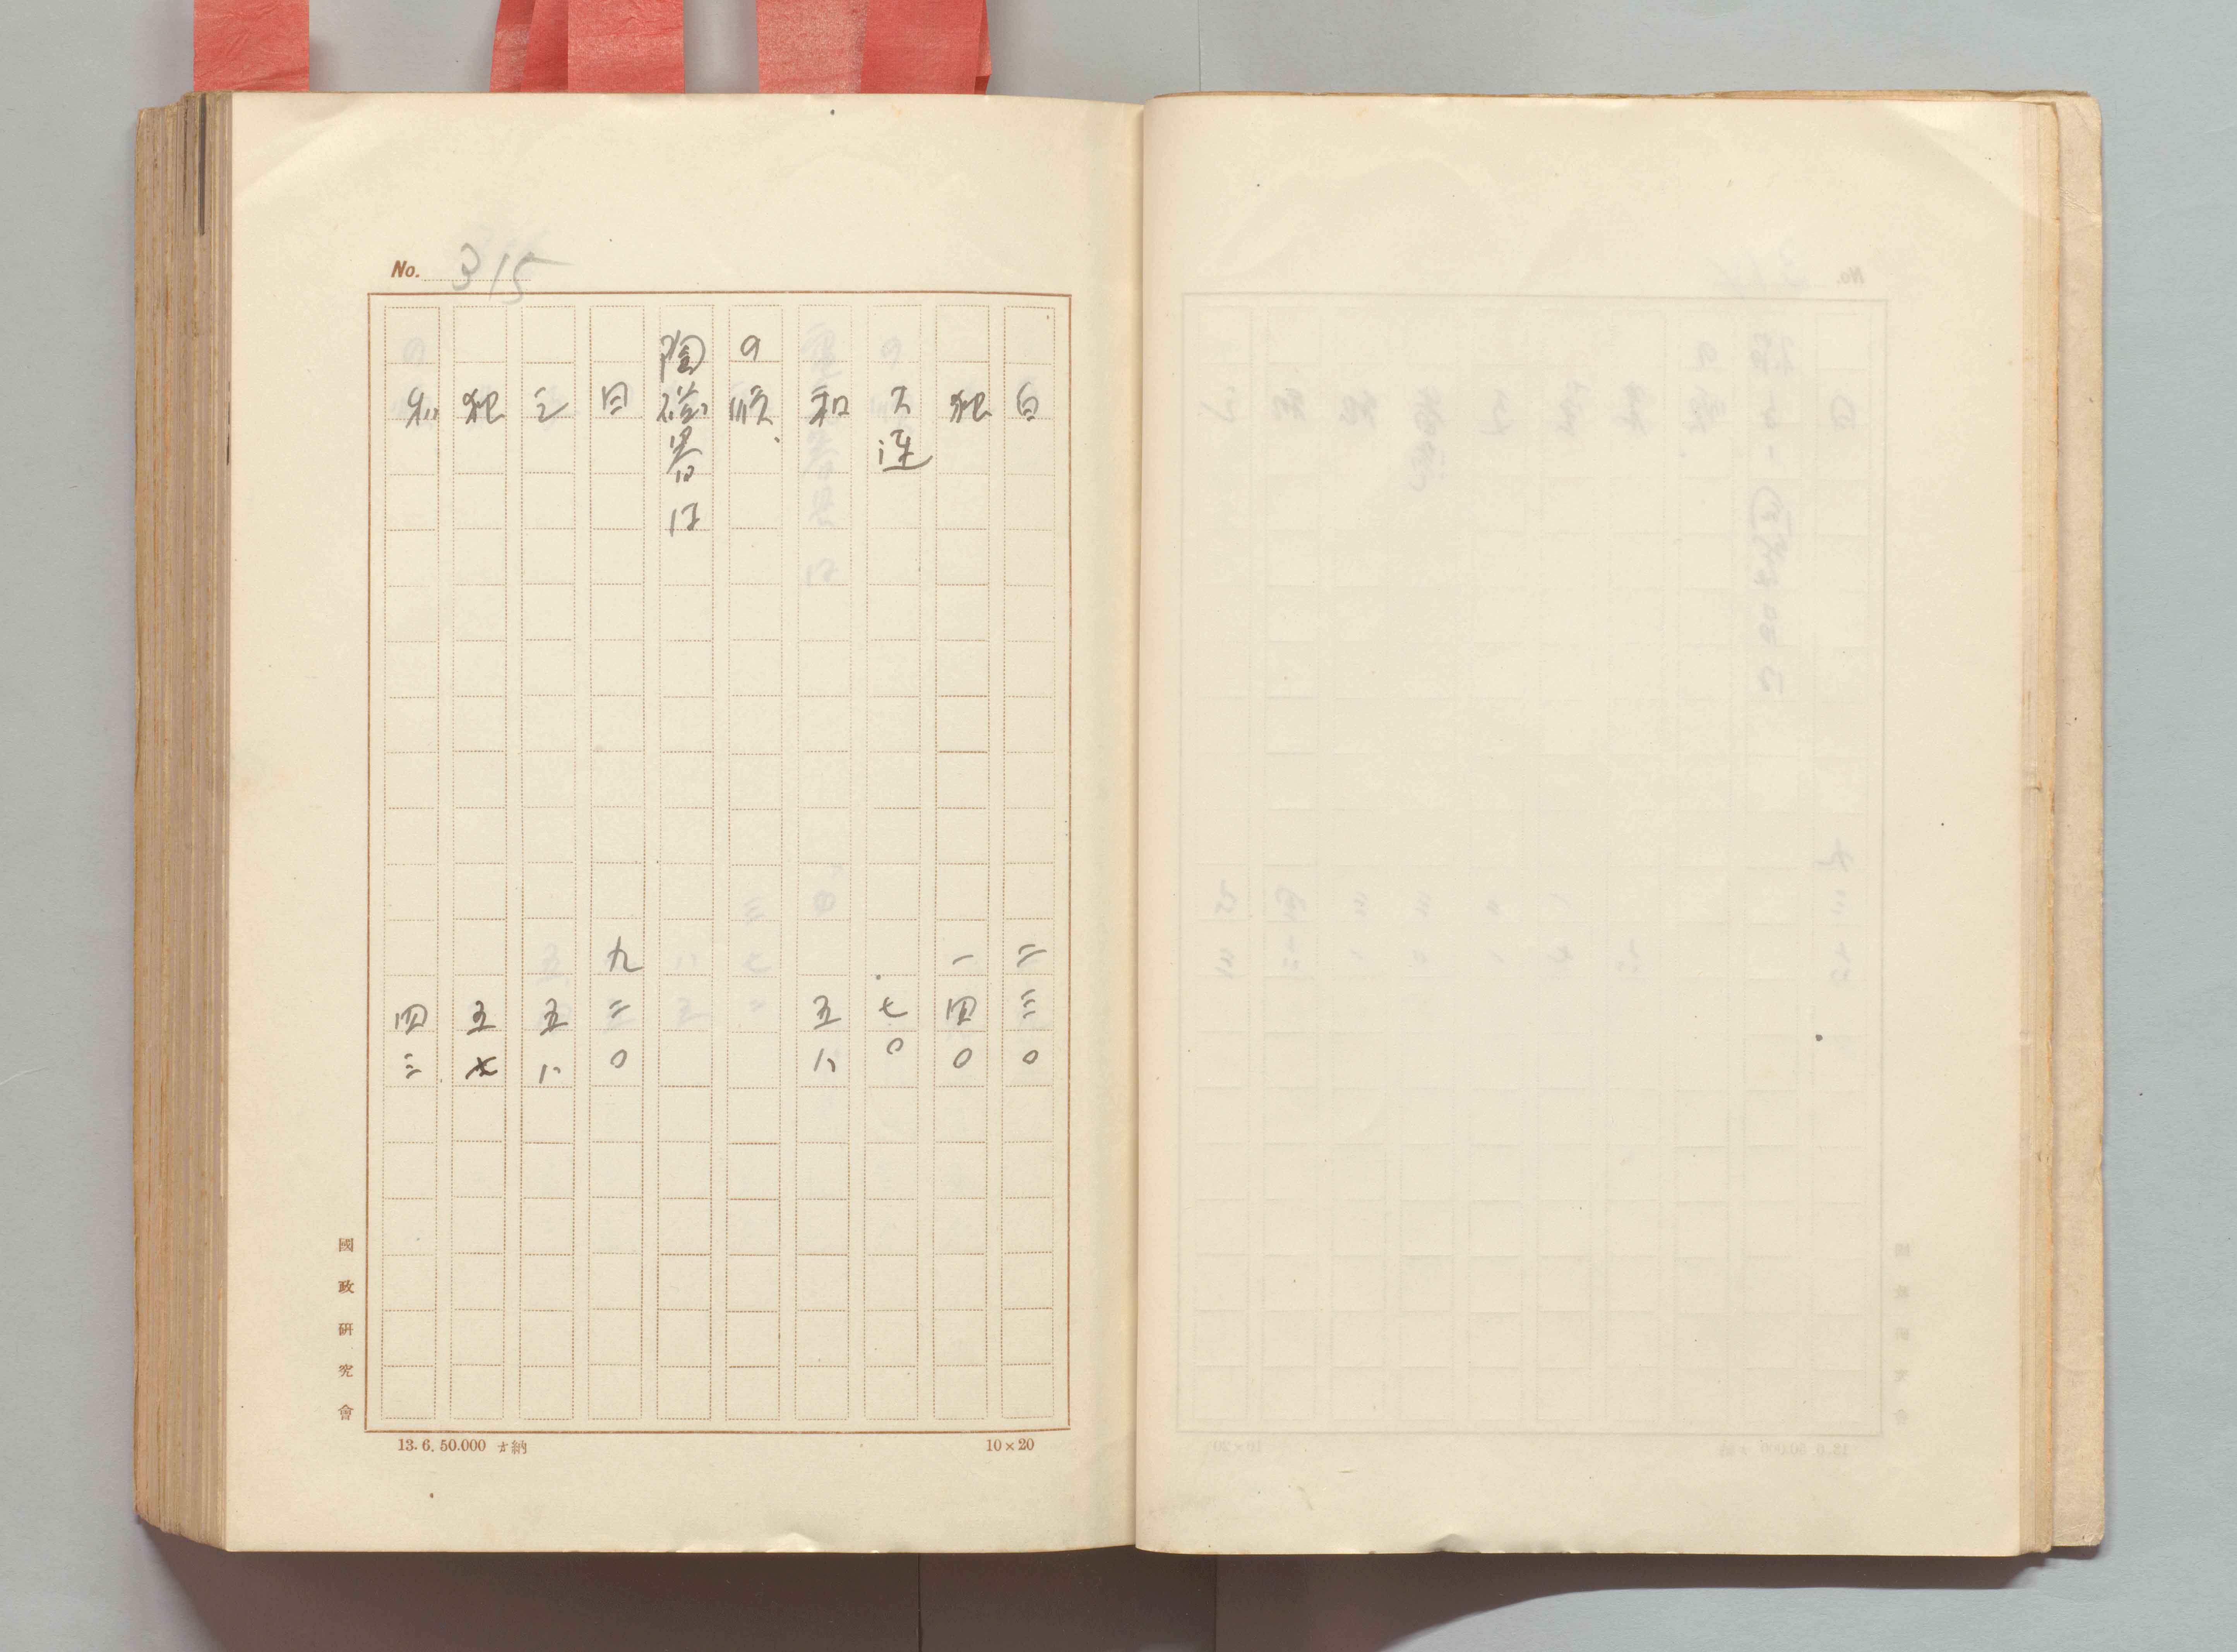 No. 315
白 二三〇
犯 一四〇
大連 七〇
和 五八
の順、
陶磁器は
日 九二〇
三 五八
犯 五七
和 四三
國政研究會
13.6.50.000 納
10×20